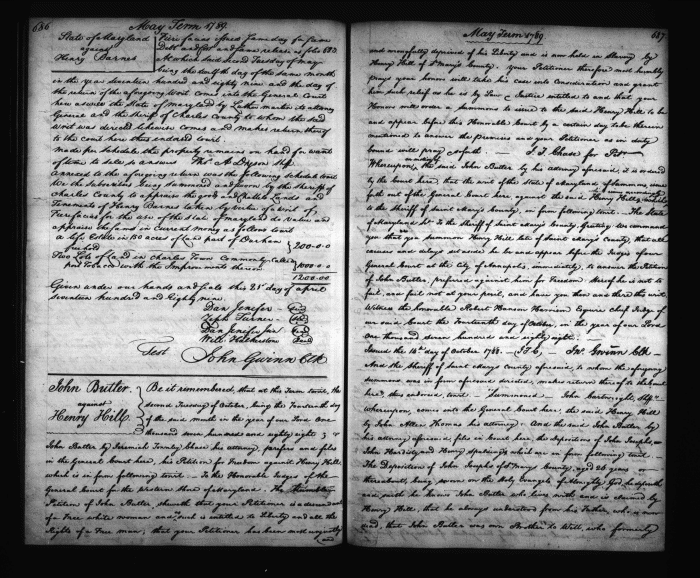 686
May Term 1789
State of Maryland
against
Henry Barnes
Fieri facias
being the tenth day of the same month
in the year seventeen hundred and eighty nine and the day of
the return of the aforegoing Writ came into the General Court
here as well the State of Maryland by Luther Martin its attorney
General and the Sheriff of Charles County to whom the said
Writ was directed likewise comes and makes return thereof
to the Court here thus endorsed to wit
Made per Schedule the property remains on hand for want
of time to sale to answer Thos. A Dyson Shff
Annexed to the aforegoing return was the following Schedule to wit
We the Subscribers being summoned and sworn by the Sheriff of
Charles County to appraise the goods and Chattels Lands and
Tenements of Henry Barnes taken by virtue of a Writ of
Fierifacias for the use of the State of Maryland do value and
appraise the same in Current money as follows to wit
a life Estate in 130 acres of land part of Durham
freehold
200.0.0
Two Lots of Land in Charles Town Commonly called
port Tobacco with the Improvements thereon
1000.0.0
1200.00
Given under our hands and Seals this 25th day of april
Seventeen hundred and Eighty nine
Dan Jenifer Seal
Zeph Turner Seal
Dan Jenifer Junr Seal
Will Seal
Test John Gwinn Clk
John Butler
against
Henry Hill
Be it remembered, that at the Term to wit, the
second Tuesday of October, being the Fourteenth day
of the said month in the year of our Lord One
thousand seven hundred and eighty eight
John Butler by Jeremiah Townley Chase his attorney, prefers and files
in the General Court here, his Petition for Freedom against Henry Hill
which is in form following to wit. To the Honorable Judges of the
General Court for the western Shore of Maryland. The Humble
Petition of John Butler sheweth that your Petitioner is descended
of a Free white woman and such is entitled to Liberty and all the
Rights of a Free man; that your Petitioner has been most unjustly
and
May Term 1789
687
and wrongfully deprived of his Liberty and is now held in Slavery by
Henry Hill of St Mary's County. your Petitioner therefore most humbly
prays your honors will take his case into Consideration and grant
him such relief as he is by Law & Justice entitled to and that your
Honors will order a summons to issue to the said Henry Hill to be
and appear before this Honorable Court by a certain day to be therein
mentioned to answer the premises and your Petitioner as in duty
bound will pray &cforth. J T. Chase for Petr
Whereupon, the said John Butler by his attorney aforesaid, it is ordered
by the Court here, that the writ of the State of Maryland of summons, issue
forth out of the General Court here, against the said Henry Hill, directed
to the Sheriff of Saint Mary's County, in form following to wit. The State
of Maryland Sct. To the Sheriff of Saint Mary's County, Greeting. We command
you that you summon Henry Hill late of Saint Mary's County, that all
excuses and delays set aside he be and appear before the Judges of our
General Court at the City of Annapolis, immediately, to answer the Petition
of John Butler, preferred against him for Freedom. Hereof he is not to
fail, and fail not at your peril, and have you then and there this writ.
Witness the honorable Robert Hanson Harrison Esquire Chief Judge of
our said Court the Fourteenth day of October, in the year of our Lord
One thousand seven hundred and eighty eight.
Issued the 14th day of October 1788. JTC. Jno. Gwinn Clk
And the Sheriff of Saint Mary's County aforesaid, to whom the aforegoing
summons was in form aforesaid directed, makes return thereof to the Court
here, thus endorsed, to wit "Summoned John Cartwright Shff"
whereupon, comes into the General Court here, the said Henry Hill
by John Allen Thomas his attorney. And the said John Butler by
his attorney aforesaid files in Court here, the Depositions of Joseph,
John Hardisty and Henry which are in form following to wit.
The Deposition of John Josephs of St Marys County, aged 28 years or
thereabouts, being sworn on the Holy Evangels of Almighty God, deposeth
and saith he knows John Butler who lives with and is claimed by
Henry Hill, that he always understood from his Father, who is now
dead, that John Butler was own Brother to Will, who formerly